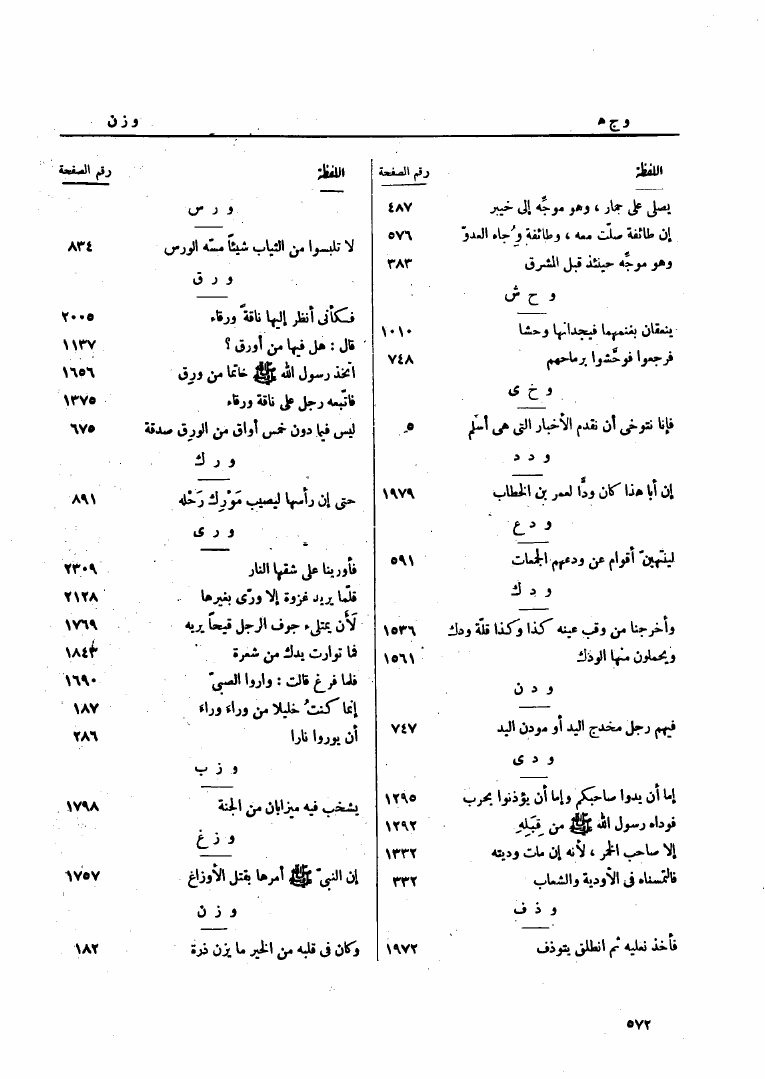 وج ه
وزن
اللفظة رقم الصفحة
يصلى على حمار ، وهو موجِّه إلى خيبر ٤٨٧
إن طائفة صلّت معه ، وطائفة وُجاه العدوّ ٥٧٦
وهو موجّه حينئذ قبل المشرق ٣٨٣
و ح ش
ينعقان بغنمهما فيجدانها وحشا ١٠١٠
فرجعوا فوحّشوا برماحهم ٧٤٨
و خ ى
فإنا نتوخى أن نقدم الأخبار التى هى أسلم ٥
و د د
إن أبا هذا كان ودًّا لعمر بن الخطاب ١٩٧٩
و د ع
لينتهينّ أقوام عن ودعهم الجمعات ٥٩١
و د ك
وأخرجنا من وقب عينه كذا وكذا قلّة ودك ١٥٣٦
ويحملون منها الودك ١٥٦١
و د ن
فيهم رجل مخدج اليد أو مودن اليد ٧٤٧
و د ى
إما أن يدوا صاحبكم وإما أن يؤذنوا بحرب ١٢٩٥
فوداه رسول الله ﷺ من قِبَلِهِ ١٢٩٢
إلا صاحب الجمر ، لأنه إن مات وديته ١٣٣٢
فالتمسناه فى الأودية والشعاب ٣٣٢
و ذ ف
فأخذ نعليه ثم انطلق يتوذف ١٩٧٢
اللفظة رقم الصفحة
و ر س
لا تلبسوا من الثياب شيئاً مسّه الورس ٨٣٤
و ر ق
فكأنى أنظر إليها ناقةً ورقاء ٢٠٠٥
قال : هل فيها من أورق ؟ ١١٣٧
اتخذ رسول الله ﷺ خاتما من ورق ١٦٥٦
فاتّبعه رجل على ناقة ورقاء ١٣٧٥
ليس فيما دون خمس أواق من الورق صدقة ٦٧٥
و ر ك
حتى إن رأسها ليصيب مَوْرِك رَحْله ٨٩١
و ر ى
فأورينا على شقها النار ٢٣٠٩
قلّما يريد غزوة إلا ورّى بغيرها ٢١٢٨
لَأن يمتلىء جوف الرجل قيحاً يريه ١٧٦٩
فما توارت يدك من شعرة ١٨٤٣
فلما فرغ قالت : واروا الصبىّ ١٦٩٠
إنما كنتُ خليلا من وراء وراء ١٨٧
أن يوروا نارا ٢٨٦
و ز ب
يشخب فيه ميزابان من الجنة ١٧٩٨
و ز غ
إن النبىّ ﷺ أمرها بقتل الأوزاغ ١٧٥٧
و ز ن
وكان فى قلبه من الخير ما يزن ذرة ١٨٢
٥٧٢